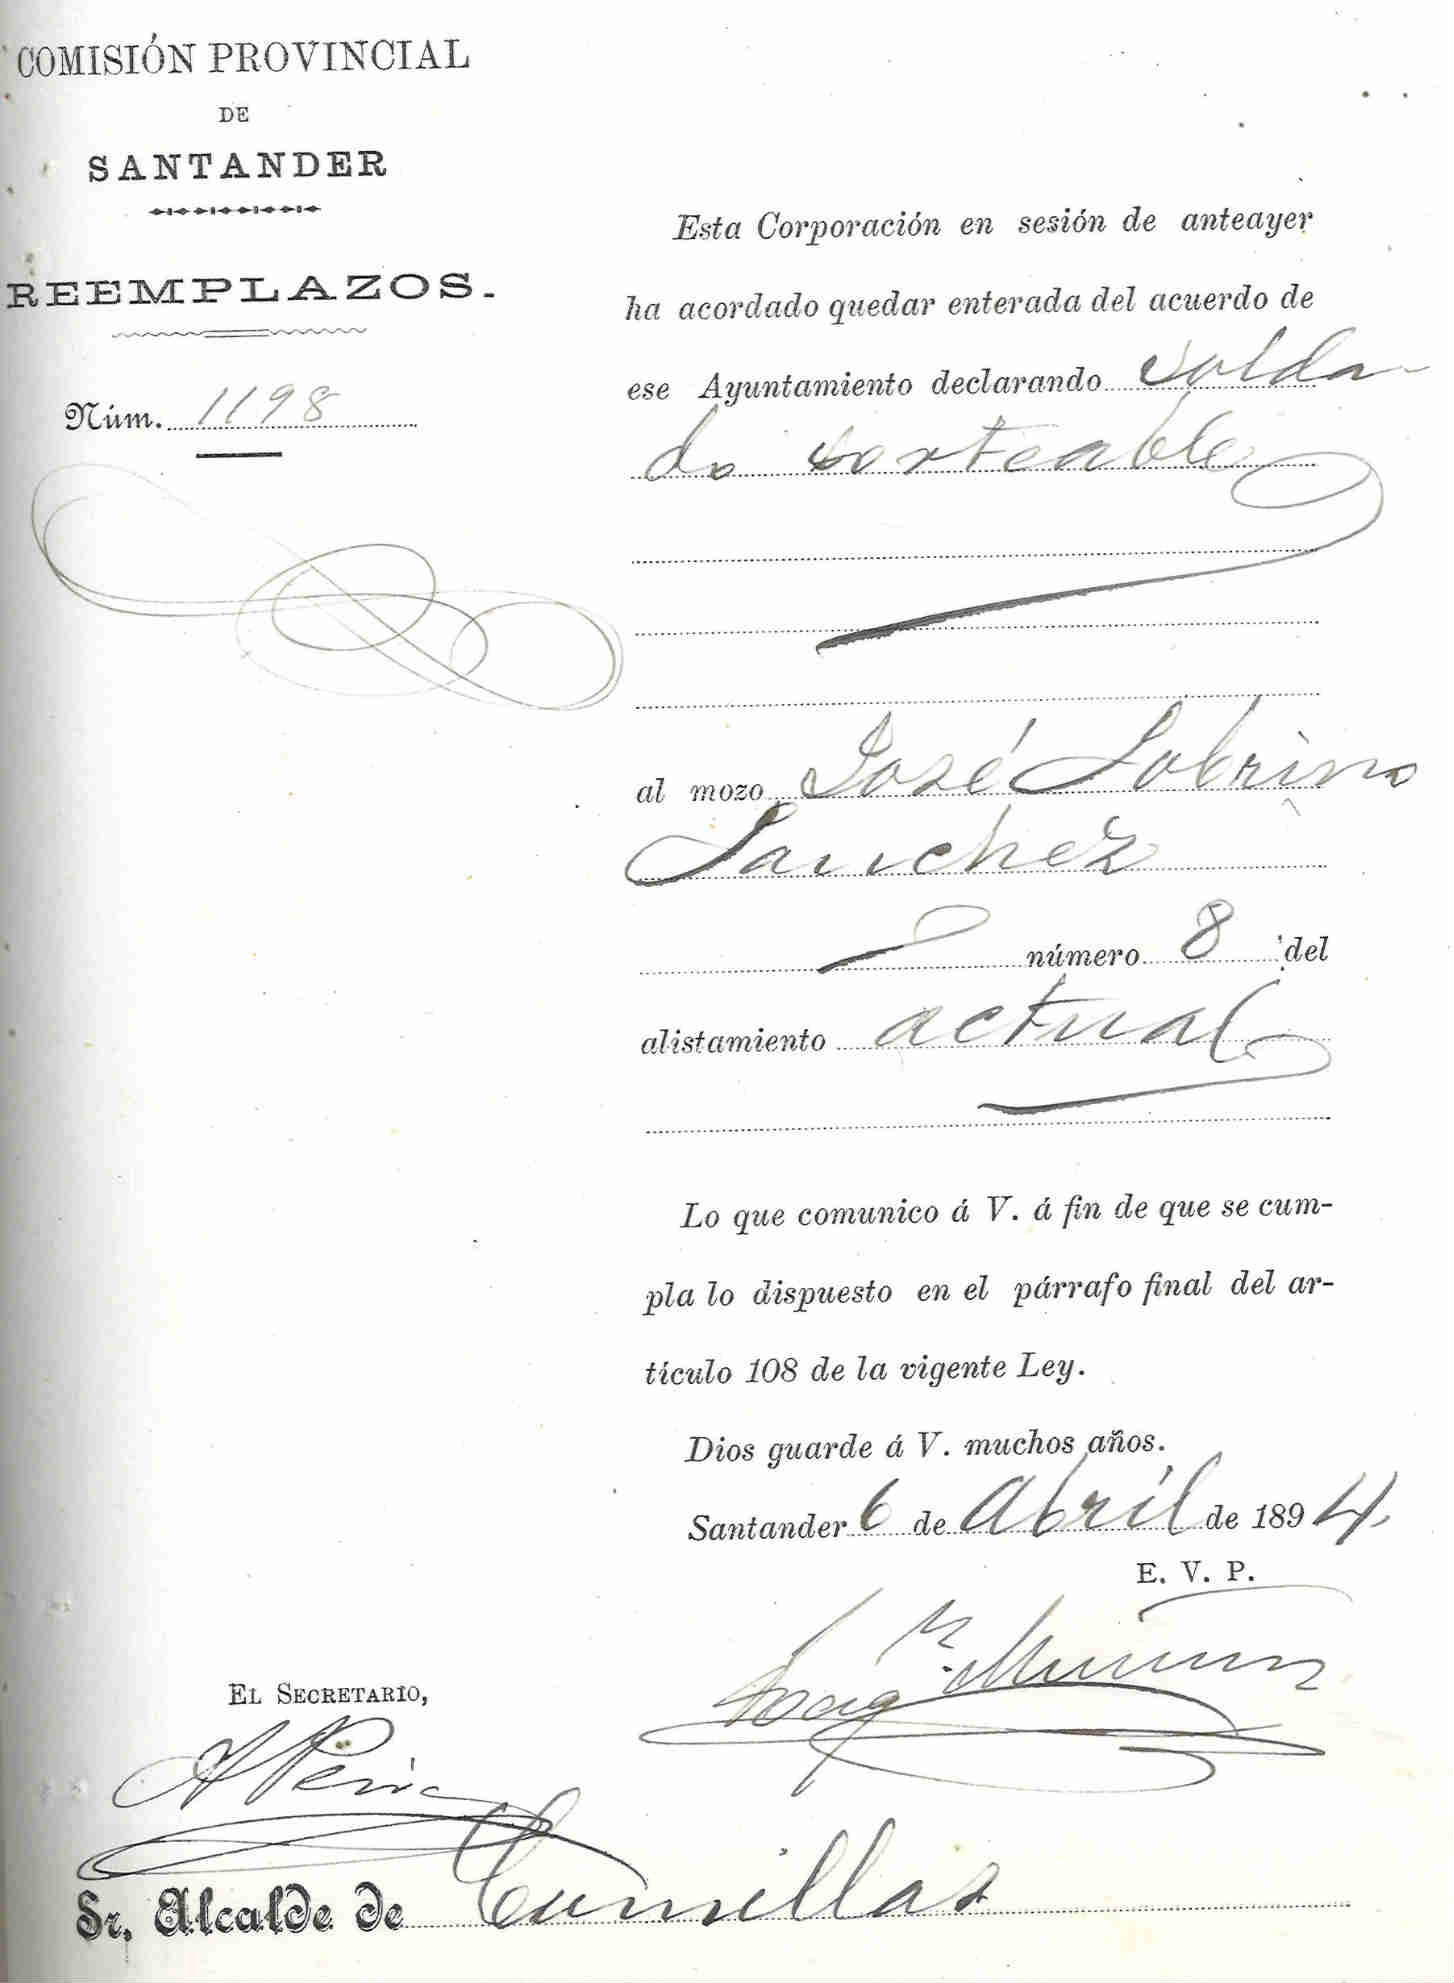 COMISIÓN PROVINCIAL
DE
SANTANDER
REEMPLAZOS.
Núm. 1198
Esta Corporación en sesión de anteayer
ha acordado quedar enterada del acuerdo de
ese Ayuntamiento declarando solda-
do sorteable
al mozo José Sobrino
Sanchez
número 8 del
alistamiento actual
Lo que comunico á V. á fin de que se cum-
pla lo dispuesto en el párrafo final del ar-
tículo 108 de la vigente Ley.
Dios guarde á V. muchos años.
Santander 6 de Abril de 1894.
E. V. P.
EL SECRETARIO,
Sr. Alcalde de Comillas